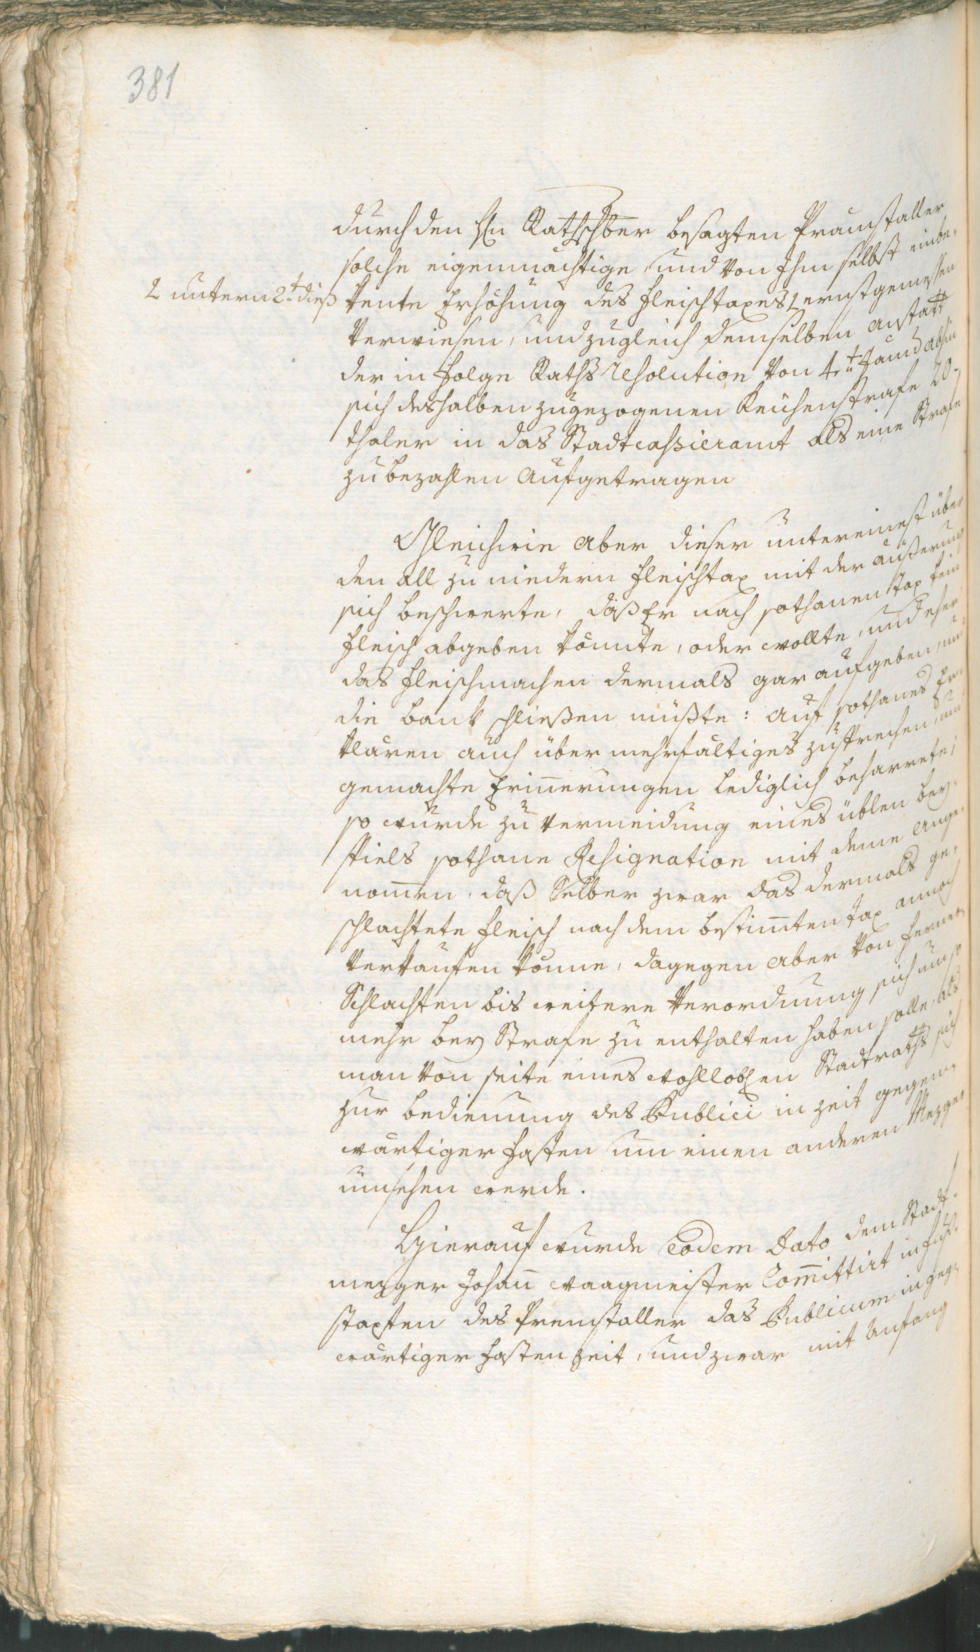 381
durch den Hn Rathschbr besagten Praunstaller
solche eigenmächtige und von Ihm selbst einbe-
2 untern 2t dieß
kente Erhöhung des Fleischtaxes 2 ernstgemessen
verwiesen, und zugleich demselben anstatt
der in Folge Raths Resolution von 4tn
sich deshalben zugezogenen Keichenstrafe 20
thaler in das Stadtcassieramt als eine Strafe
zu bezahlen aufgetragen
Gleichwie aber dieser untereinest über
den all zu niedern Fleischtax mit der äußerung
sich beschwerte, daß Er nach sothanen tax kein
Fleisch abgeben könnte, oder wollte, und eher
das Fleischmachen dermals gar aufgeben, und
die bank schließen müßte: auf sothanes Er-
klären auch über mehrfältiges zusprechen, und
gemachte Erinnerungen lediglich beharrete;
so wurde zu vermeidung eines üblen bey-
spiels sothane Resignation mit deme ange-
nomen, daß Selber zwar das dermals ge-
schlachtete Fleisch nach dem bestimten tax annoch
verkaufen könne, dagegen aber von ferneren
Schlachten bis weitere Verordnung sich um so
mehr bey Strafe zu enthalten haben solle, als
man von seite eines wohlloben Stadtraths sich
zur bedienung des Publici in zeit gegen-
wärtiger Fasten um einen anderen Mezger
umsehen werde.
Hierauf wurde Eodem Dato dem Stadt-
mezger Johan waagmeister Comittirt in Fuß-
stapfen des Premstaller das Publicum in geg-
wärtiger Fastenzeit, und zwar mit Anfang